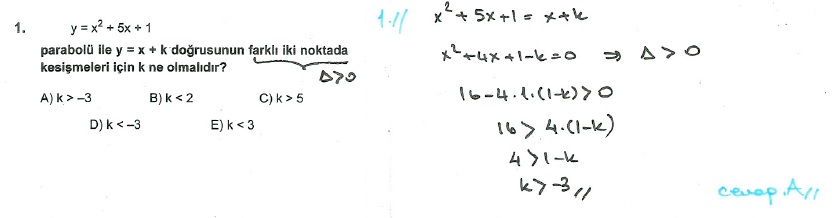 1. y = x² + 5x + 1
parabolü ile y = x + k doğrusunun farklı iki noktada
kesişmeleri için k ne olmalıdır?
Δ>0
A) k > –3 B) k < 2 C) k > 5
D) k < –3 E) k < 3
1.//
x² + 5x + 1 = x + k
x² + 4x + 1 – k = 0 ⇒ Δ > 0
16 – 4 . 1 . (1–k) > 0
16 > 4 . (1–k)
4 > 1–k
k > –3 //
cevap A //